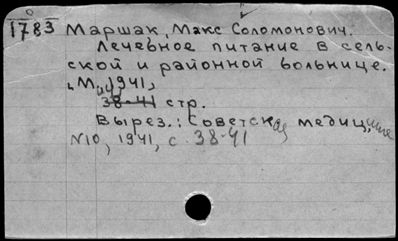 1783 Маршак, Макс Соломонович.
Лечебное питание в сель-
ской и районной больнице.
"М., 1941,
38-41 стр.
Вырез.: Советская медицина
N10, 1941, с. 38-41